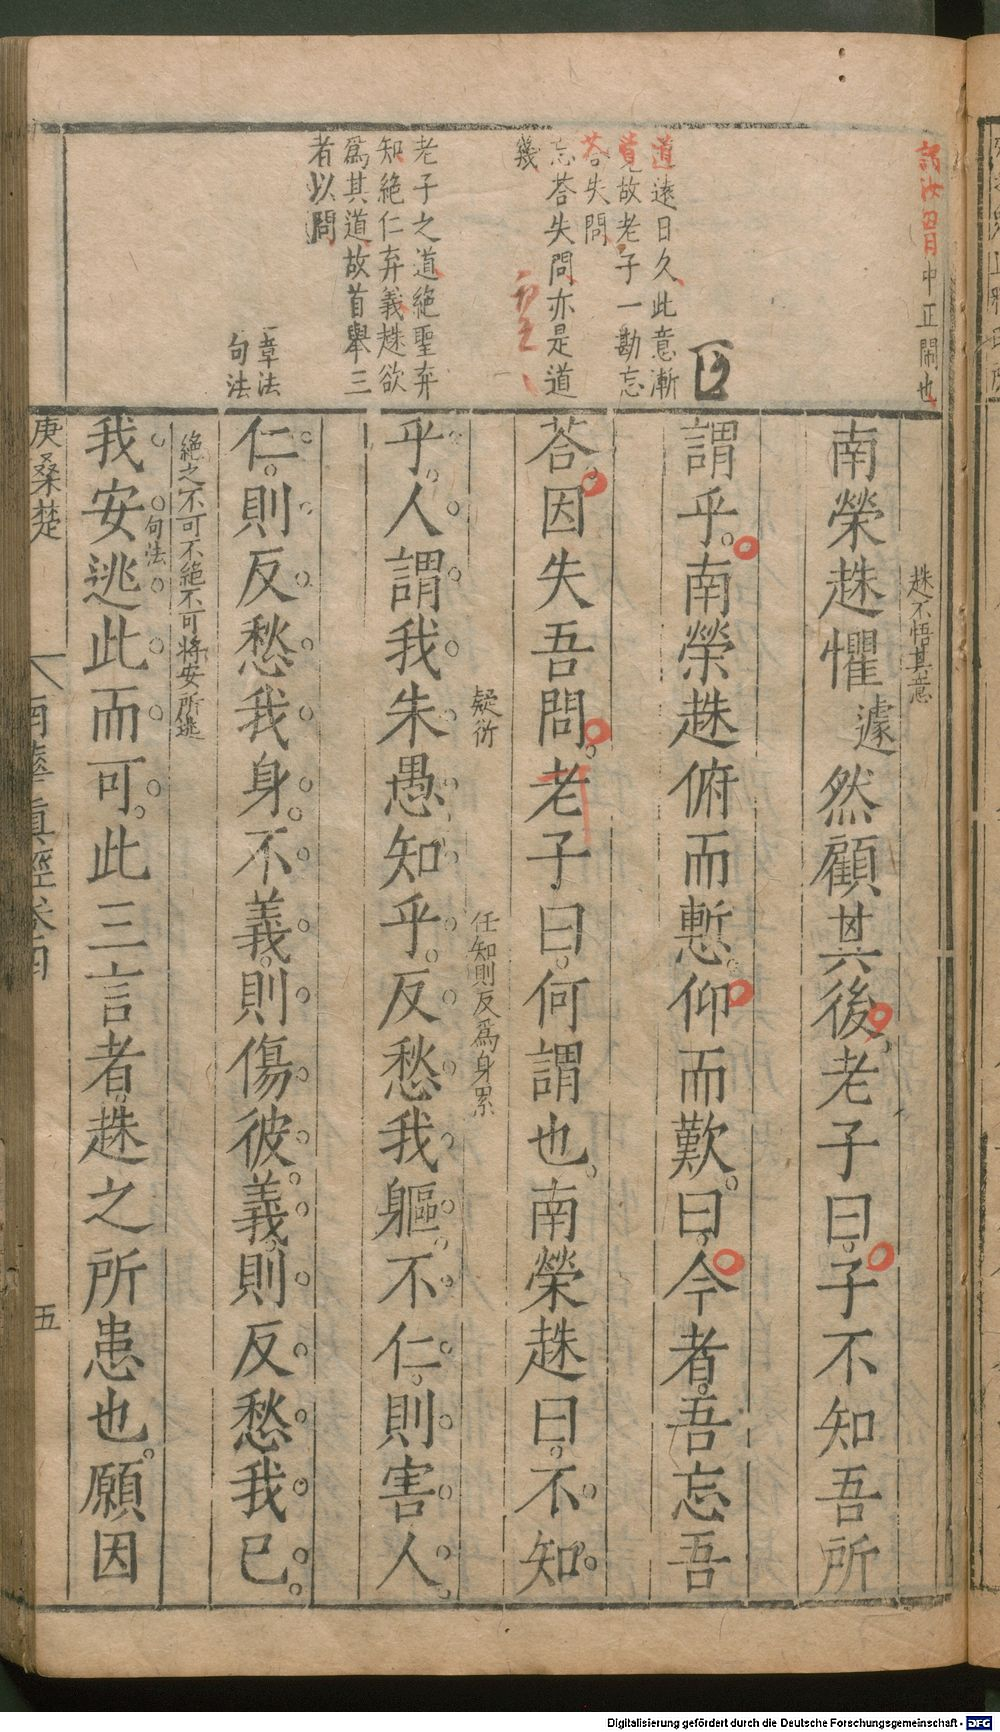 中正鬧也
道遠日久此意漸
覺故老子一勘忘
荅失問
忘荅失問亦是道
幾
老子之道絕聖弃
知絕仁弃義趎欲
爲其道故首舉三
者以問
章法
句法
趎不悟其意
南榮趎懼遽然顧其後老子曰子不知吾所
謂乎南榮趎俯而慙仰而歎曰今者吾忘吾
荅因失吾問老子曰何謂也南榮趎曰不知
疑衍
任知則反爲身累
乎人謂我朱愚知乎反愁我軀不仁則害人
仁則反愁我身不義則傷彼義則反愁我已
絕之不可不絕不可將安所逃
句法
我安逃此而可此三言者趎之所患也願因
庚桑楚
南華真經卷四
五
Digitalisierung gefördert durch die Deutsche Forschungsgemeinschaft - DFG